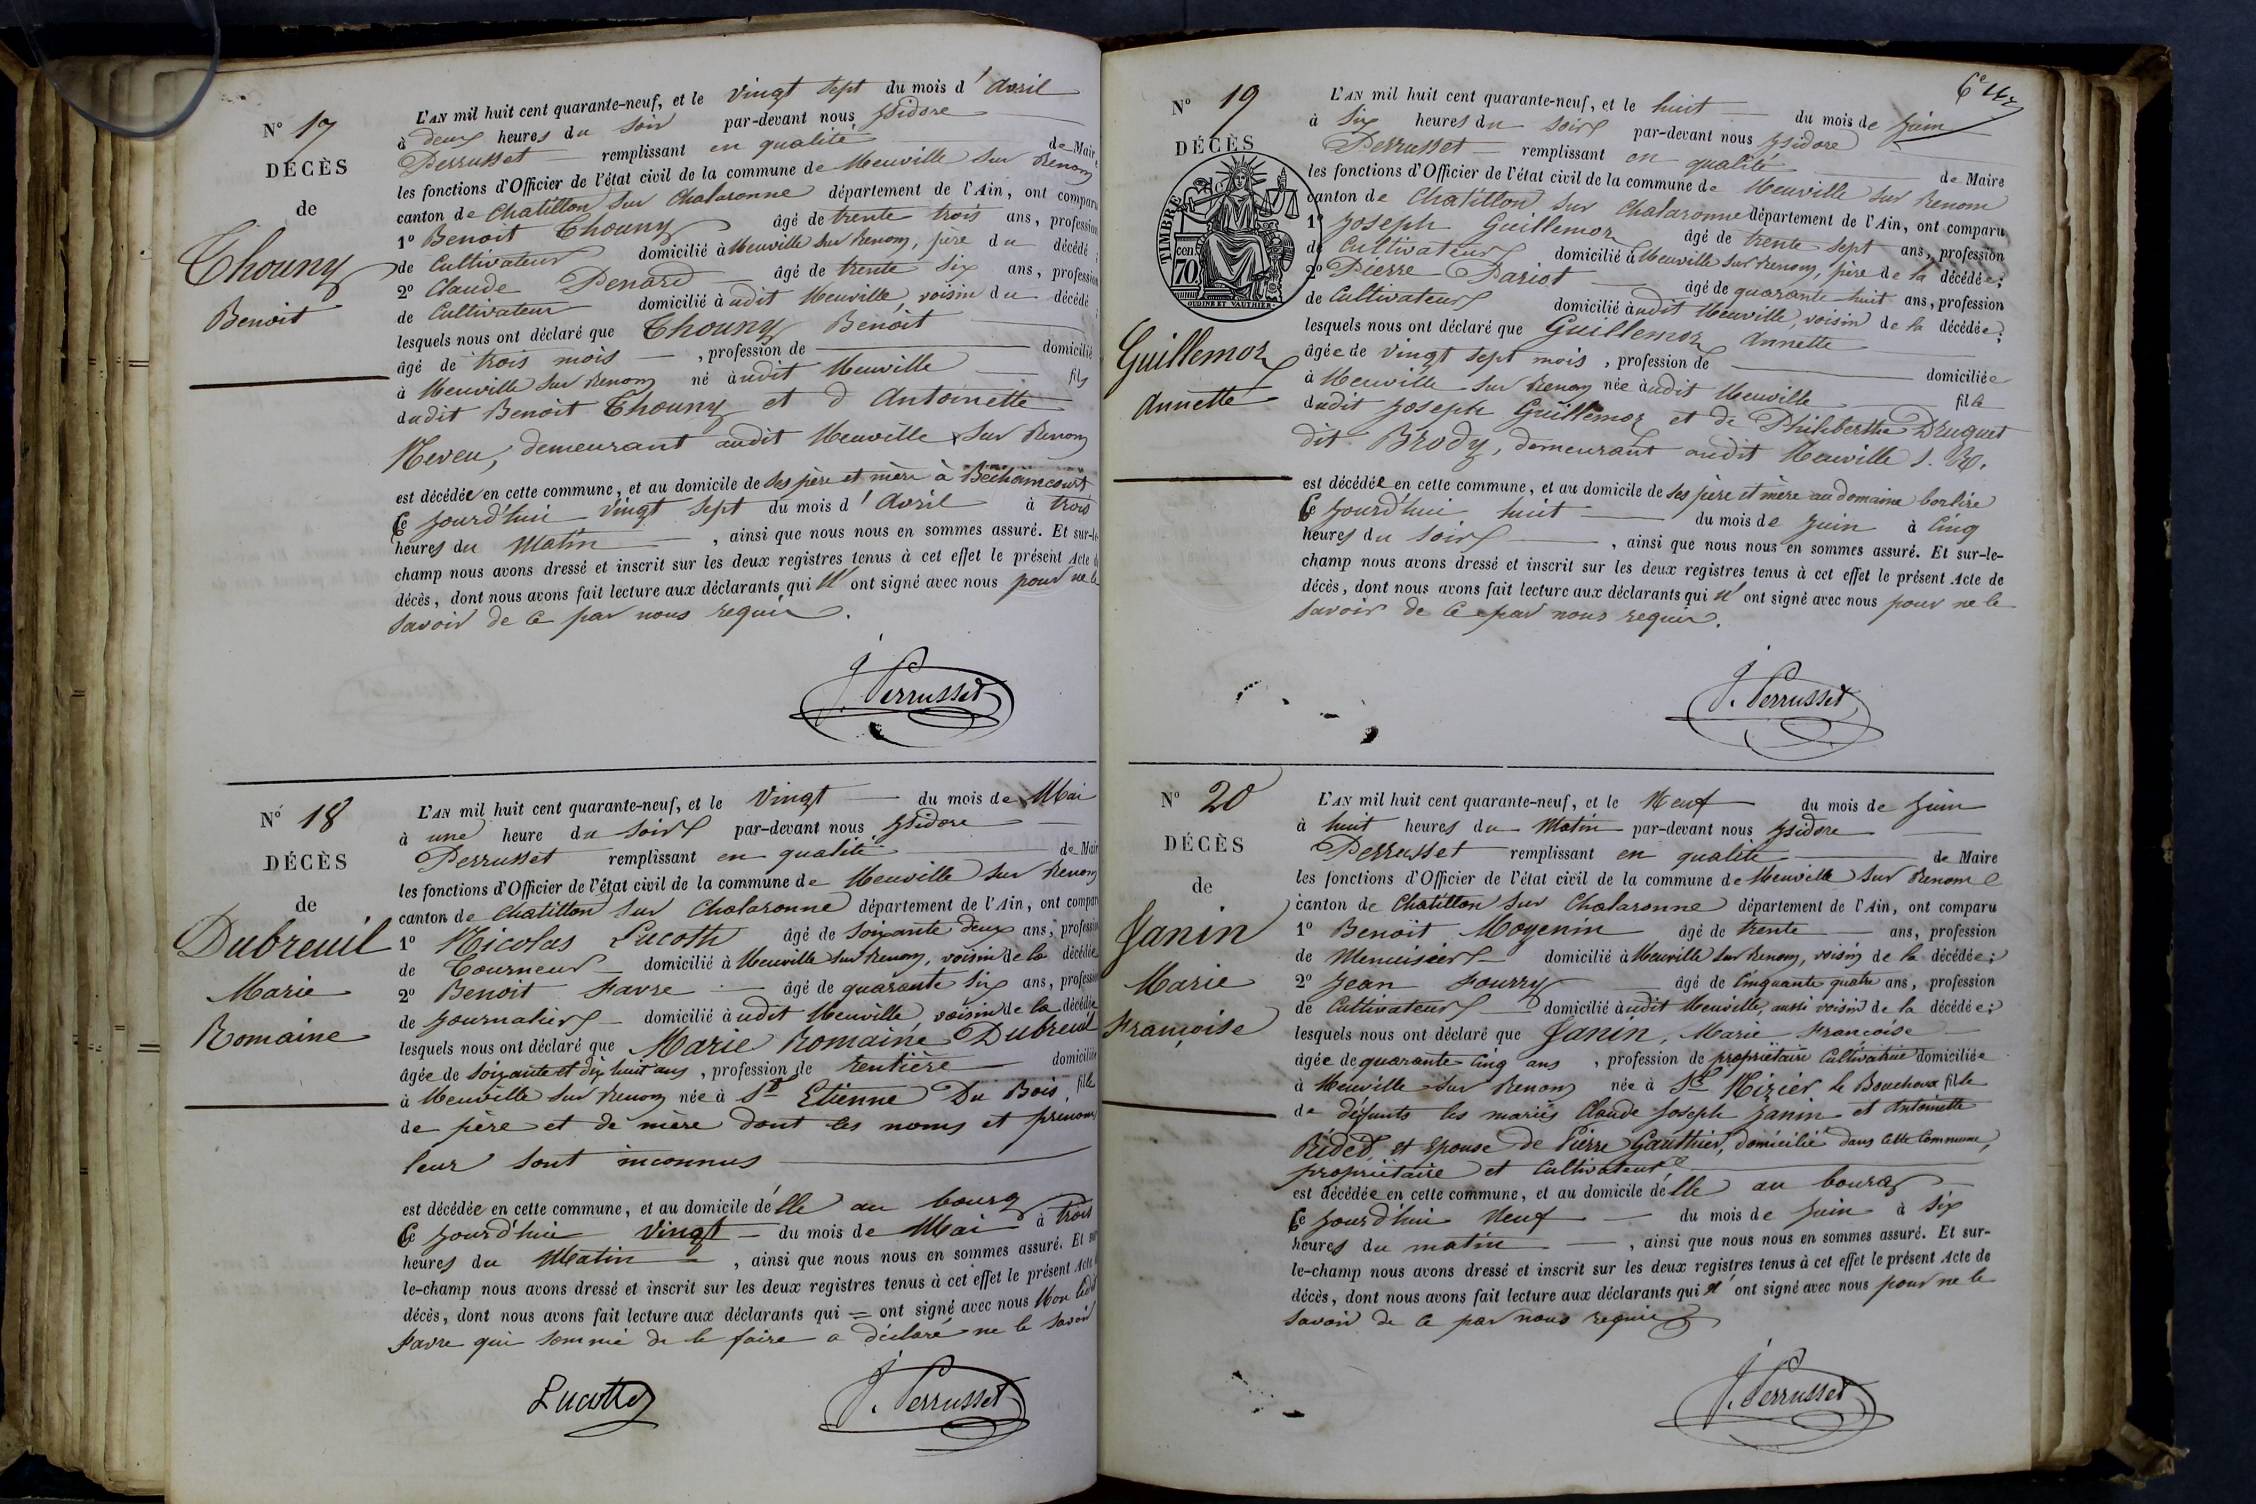 N° 17
DÉCÈS
de
Thouny
Benoit
L'AN mil huit cent quarante-neuf, et le vingt sept du mois d'avril
à deux heures du soir par-devant nous Ysidore
Perrusset remplissant en qualité de Maire
les fonctions d'Officier de l'état civil de la commune de Neuville sur Renom
canton de Chatillon sur Chalaronne département de l'Ain, ont comparu
1° Benoit Thouny âgé de trente trois ans, profession
de Cultivateur domicilié à Neuville sur Renom, père du décédé;
2° Claude Penard âgé de trente six ans, profession
de Cultivateur domicilié à udit Neuville, voisin du décédé
lesquels nous ont déclaré que Thouny Benoit
âgé de trois mois, profession de domicilié
à Neuville sur Renom né à udit Neuville fils
dudit Benoit Thouny et d Antoinette
Neveu, demeurant audit Neuville sur Renom
est décédée en cette commune, et au domicile de ses père et mère à
Ce jourd'hui vingt sept du mois d'avril à trois
heures du Matin, ainsi que nous nous en sommes assuré. Et sur-le-
champ nous avons dressé et inscrit sur les deux registres tenus à cet effet le présent Acte de
décès, dont nous avons fait lecture aux déclarants qui n'ont signé avec nous pour ne le
savoir de ce par nous requis.
J. Perrusset
N° 18
DÉCÈS
de
Dubreuil
Marie
Romaine
L'AN mil huit cent quarante-neuf, et le Vingt du mois de Mai
à une heure du soir par-devant nous Ysidore
Perrusset remplissant en qualité de Maire
les fonctions d'Officier de l'état civil de la commune de Neuville sur Renom
canton de Chatillon sur Chalaronne département de l'Ain, ont comparu
1° Nicolas Lucoth âgé de soixante deux ans, profession
de Tourneur domicilié à Neuville sur Renom, voisin de la décédée
2° Benoit Favre âgé de quarante six ans, profession
de journalier domicilié à udit Neuville voisin de la décédée
lesquels nous ont déclaré que Marie Romaine Dubreuil
âgée de soixante et dix huit ans, profession de rentière domiciliée
à Neuville sur Renom née à St Etienne Du Bois, fille
de père et de mère dont les noms et prénoms
leur sont inconnus
est décédée en cette commune, et au domicile d'elle au bourg
Ce jourd'hui vingt du mois de Mai à trois
heures du Matin, ainsi que nous nous en sommes assuré. Et sur-
le-champ nous avons dressé et inscrit sur les deux registres tenus à cet effet le présent Acte de
décès, dont nous avons fait lecture aux déclarants qui = ont signé avec nous Non ledit
Favre qui sommé de le faire a déclaré ne le savoir
Lucotte
J. Perrusset
N° 19
DÉCÈS
TIMBRE
70 cen
OUDINE ET VAUTHIER
Guillemoz
Annette
L'AN mil huit cent quarante-neuf, et le huit du mois de Juin
à six heures du soir par-devant nous Ysidore
Perrusset remplissant en qualité de Maire
les fonctions d'Officier de l'état civil de la commune de Neuville sur Renom
canton de Chatillon sur Chalaronne département de l'Ain, ont comparu
1° Joseph Guillemoz âgé de trente sept ans, profession
de Cultivateur domicilié à Neuville sur Renom, père de la décédée;
2° Pierre Pariot âgé de quarante huit ans, profession
de Cultivateur domicilié à udit Neuville, voisin de la décédée;
lesquels nous ont déclaré que Guillemoz Annette
âgée de vingt sept mois, profession de domiciliée
à Neuville sur Renom née à udit Neuville fille
dudit Joseph Guillemoz et de Philiberthe Druguet
dit Brody, demeurant audit Neuville S. R.
est décédée en cette commune, et au domicile de ses père et mère au domaine
Ce jourd'hui huit du mois de Juin à Cinq
heures du soir, ainsi que nous nous en sommes assuré. Et sur-le-
champ nous avons dressé et inscrit sur les deux registres tenus à cet effet le présent Acte de
décès, dont nous avons fait lecture aux déclarants qui n'ont signé avec nous pour ne le
savoir de ce par nous requis.
J. Perrusset
N° 20
DÉCÈS
de
Janin
Marie
Françoise
L'AN mil huit cent quarante-neuf, et le Neuf du mois de Juin
à huit heures du Matin par-devant nous Ysidore
Perrusset remplissant en qualité de Maire
les fonctions d'Officier de l'état civil de la commune de Neuville sur Renom
canton de Chatillon sur Chalaronne département de l'Ain, ont comparu
1° Benoit Moyenin âgé de trente ans, profession
de Menuisier domicilié à Neuville sur Renom, voisin de la décédée;
2° Jean Fourry âgé de Cinquante quatre ans, profession
de Cultivateur domicilié à udit Neuville, aussi voisin de la décédée;
lesquels nous ont déclaré que Janin, Marie Françoise
âgée de quarante cinq ans, profession de propriétaire Cultivatrice domiciliée
à Neuville sur Renom née à St Nizier le Bouchoux fille
de défunts les mariés Claude Joseph Janin et Antoinette
Bidet, et épouse de Pierre Gauthier, domicilié dans cette Commune,
propriétaire et Cultivateur
est décédée en cette commune, et au domicile d'elle au bourg
Ce jourd'hui Neuf du mois de Juin à six
heures du matin, ainsi que nous nous en sommes assuré. Et sur-
le-champ nous avons dressé et inscrit sur les deux registres tenus à cet effet le présent Acte de
décès, dont nous avons fait lecture aux déclarants qui n'ont signé avec nous pour ne le
savoir de ce par nous requis
J. Perrusset